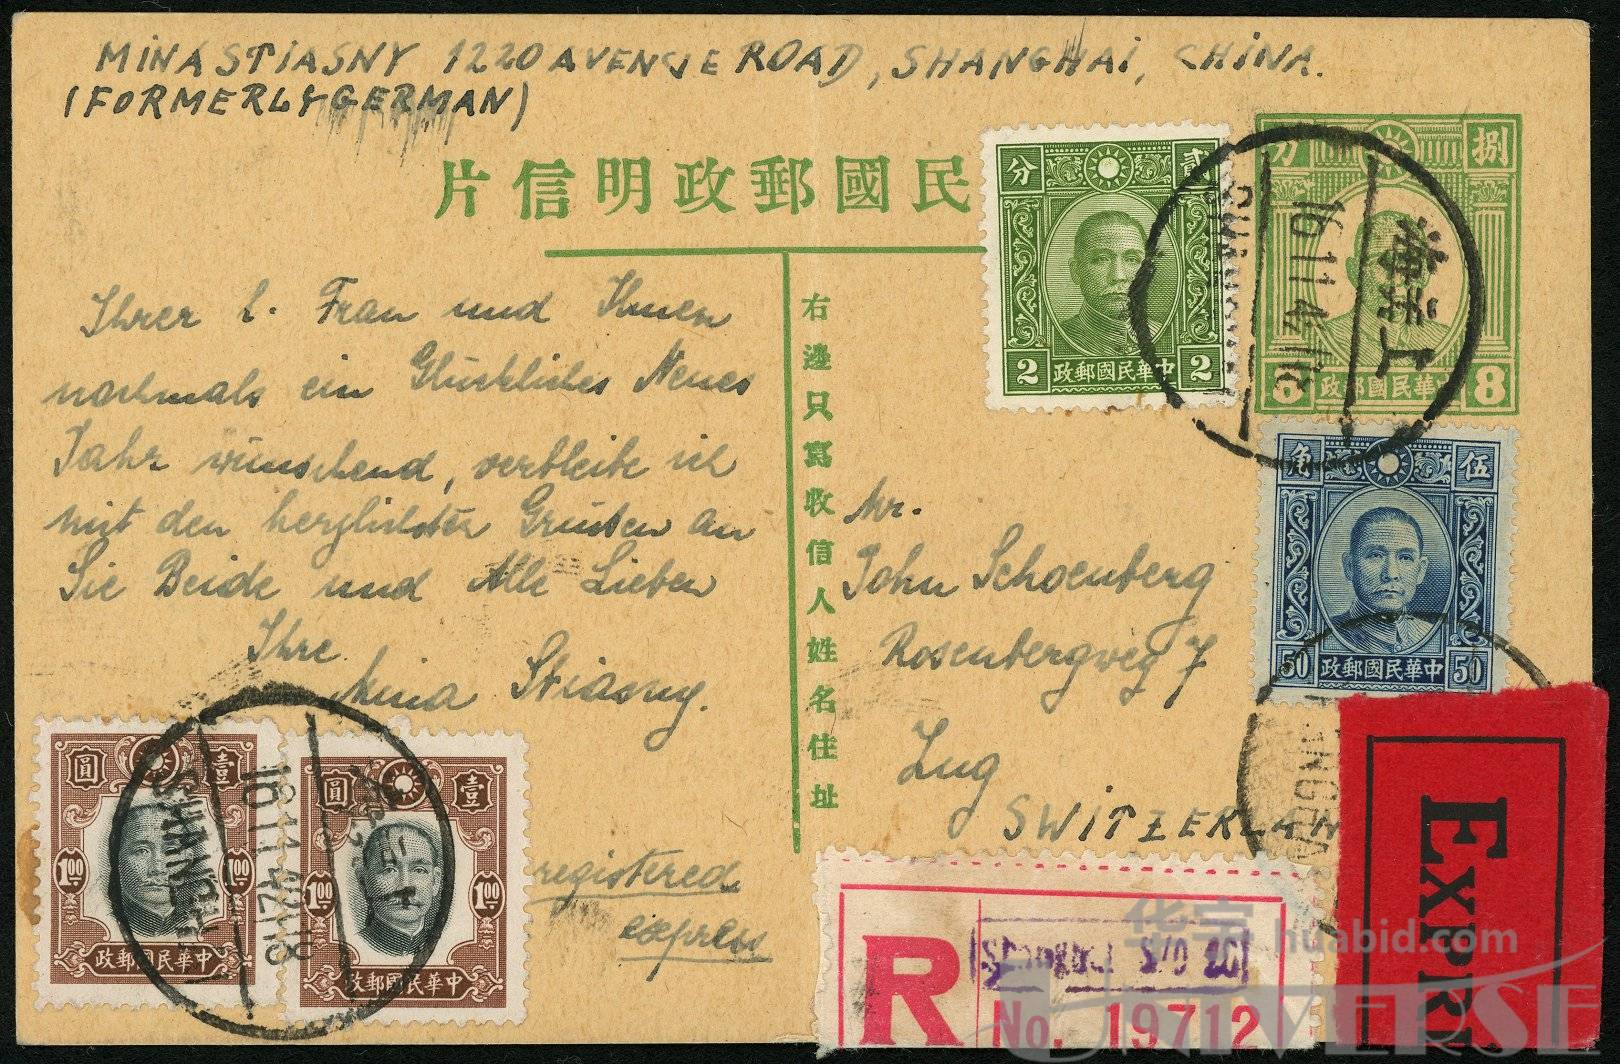 MINA STIASNY 1220 AVENUE ROAD, SHANGHAI, CHINA.
(FORMERLY GERMAN)
片信明政郵國民
Ihrer l. Frau und Ihnen
nochmals ein Glückliches Neues
Jahr wünschend, verbleibe ich
mit den herzlichsten Grüssen an
Sie Beide und Alle Lieben
Ihre
Mina Stiasny.
registered
express
右邊只寫收信人姓名住址
Mr.
John Schoenberg
Rosenbergweg 7
Zug
SWITZERLAND
分 貳
2 政郵國民華中 2
分 捌
8 政郵國民華中 8
角 伍
50 政郵國民華中 50
圓 壹
1.00 1.00
政郵國民華中
圓 壹
1.00 1.00
政郵國民華中
SHANGHAI
16.11.41
海上
SHANGHAI
16.11.41.18
R
No. 19712
EXPR
华宇 huabid.com
UNIVERSE